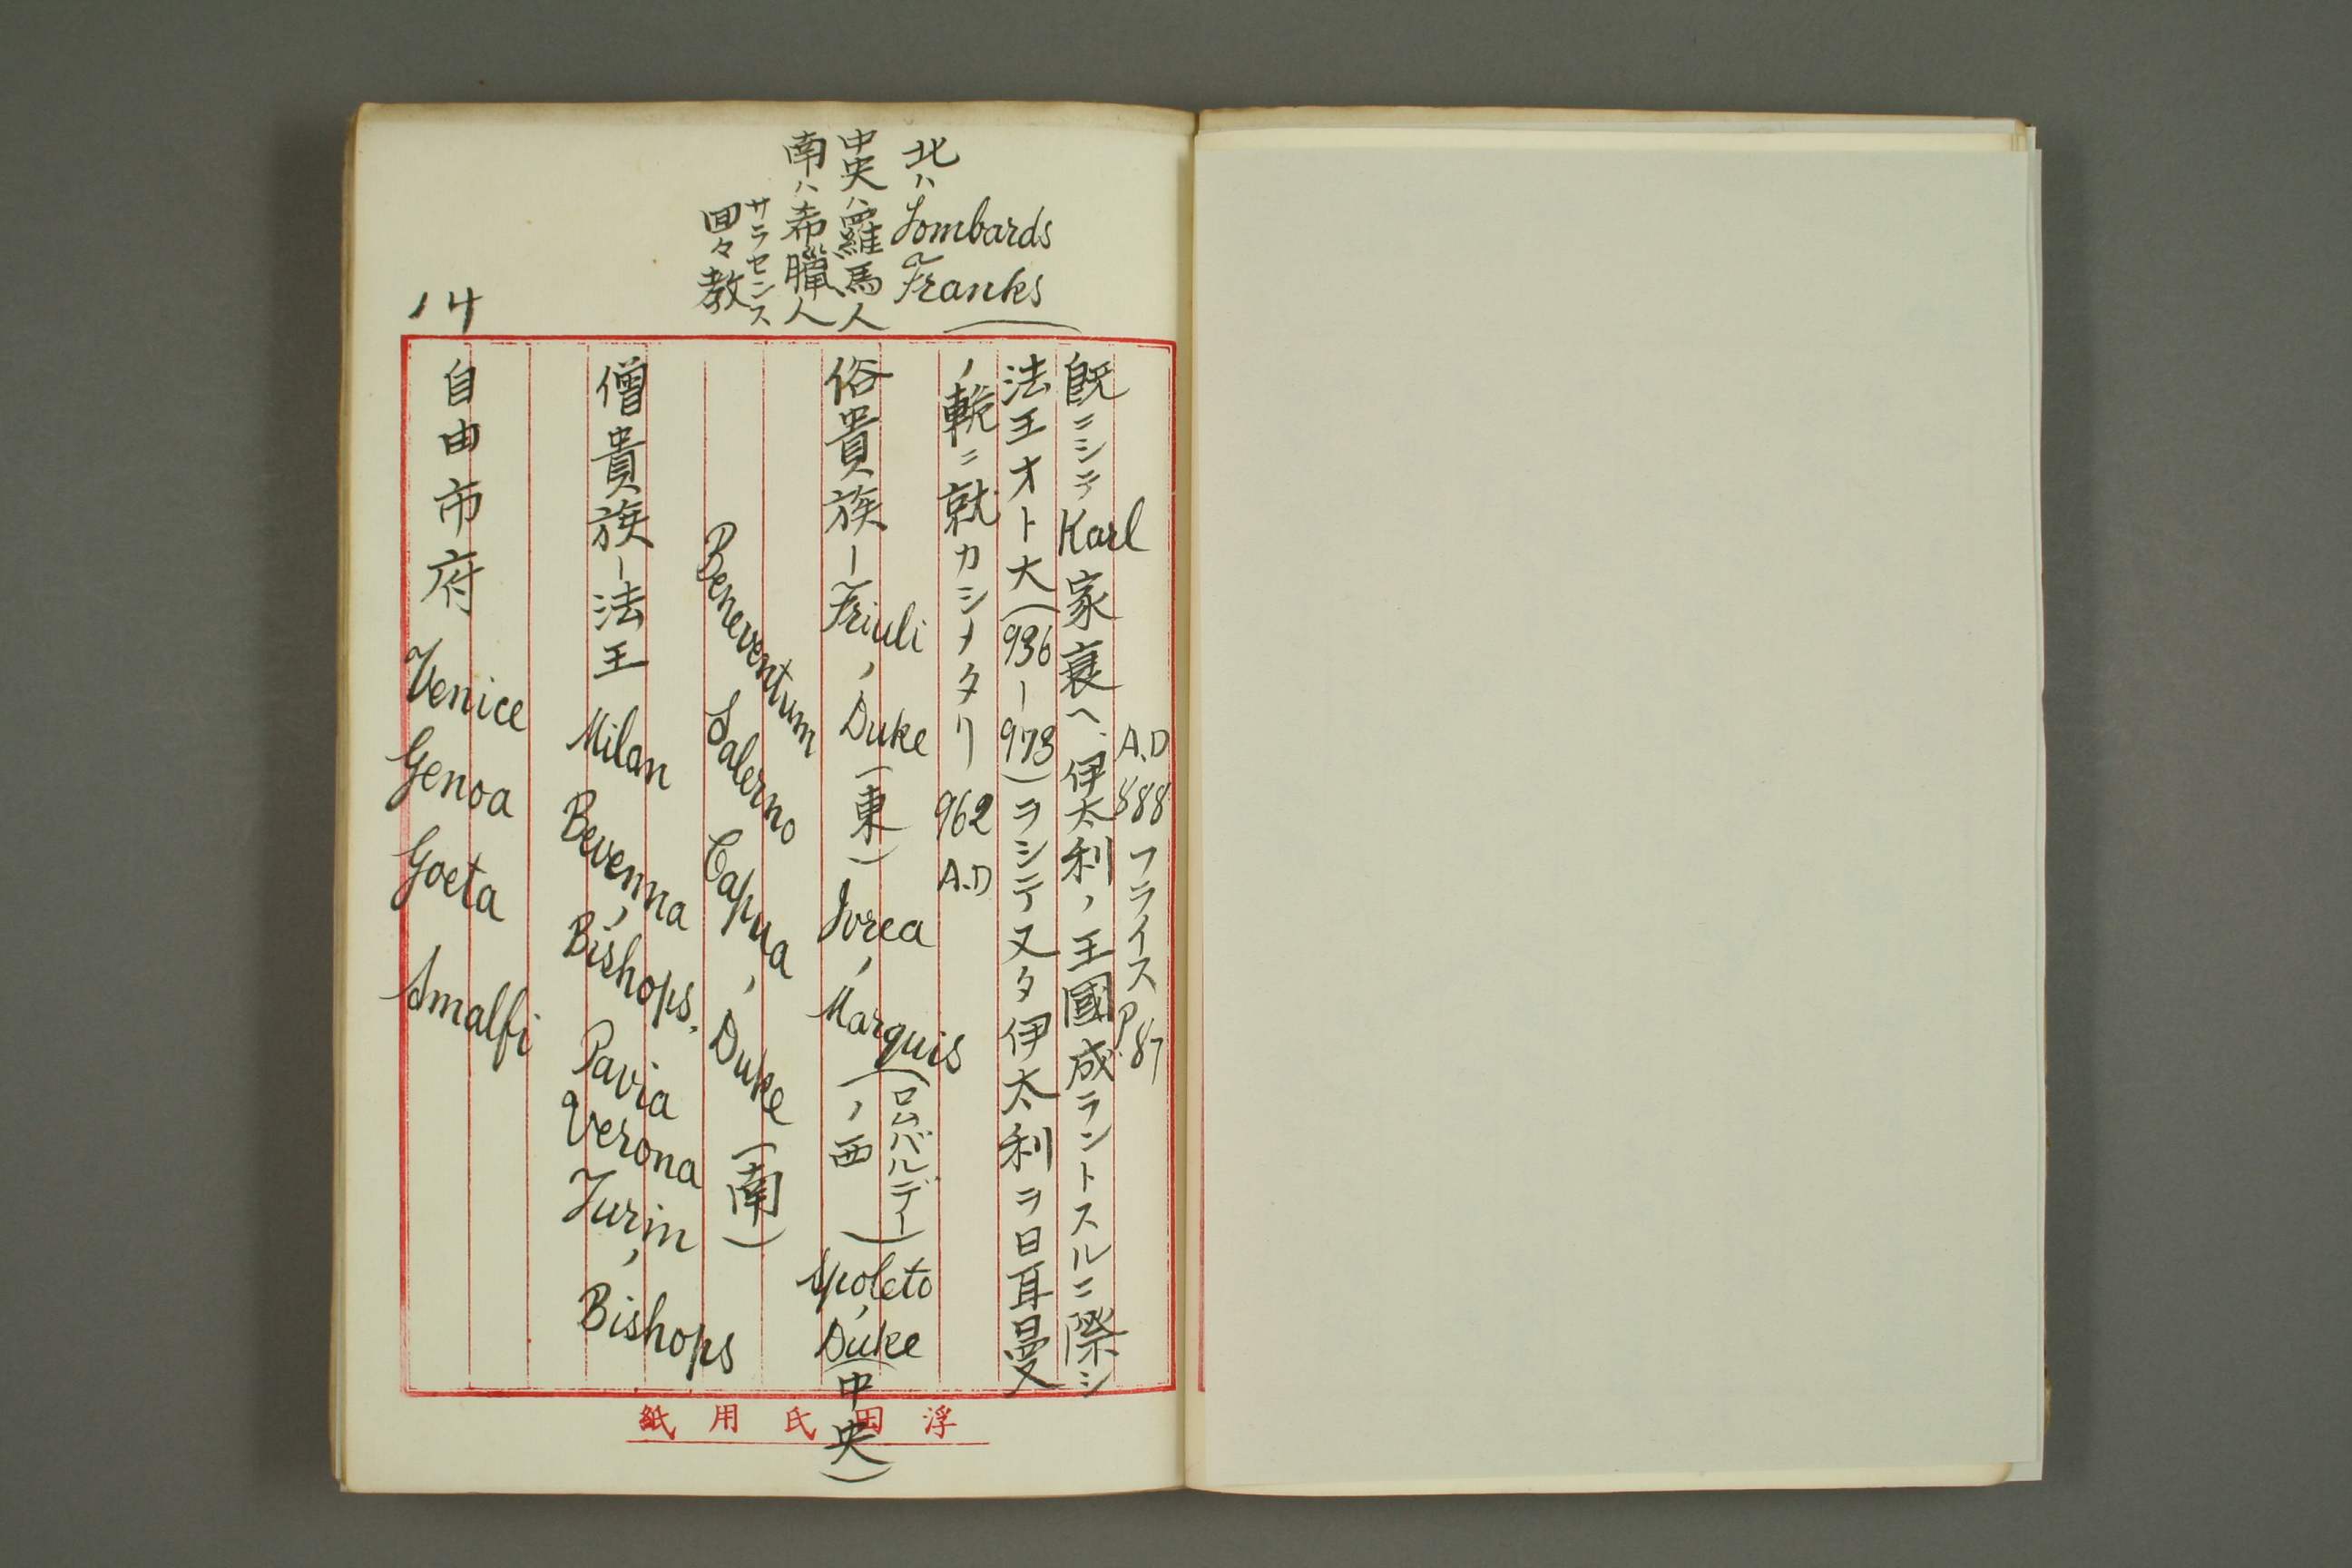 北ハ Lombards
Franks
中央ハ羅馬人
南ハ希臘人
サラセンス
回々教
14
A.D 888 フライス P.87
既ニシテ Karl 家衰ヘ、伊太利ノ王國成ラントスルニ際シ
法王オト大(936–973)ヲシテ又タ伊太利ヲ日耳曼
ノ軛ニ就カシメタリ 962 A.D
俗貴族ー Friuli, Duke (東) Ivrea, Marquis (ロムバルデーノ西) Spoleto, Duke (中央)
Beneventum Salerno Capua, Duke (南)
僧貴族ー法王 Milan Bevenna, Bishops. Pavia Verona Turin, Bishops
自由市府 Venice Genoa Goeta Amalfi
浮田氏用紙